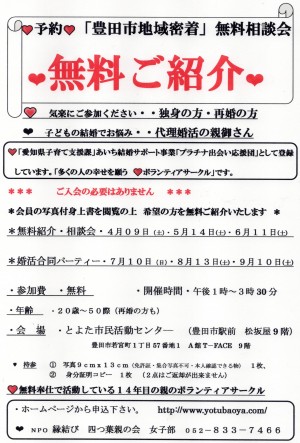 ♥予約♥「豊田市地域密着」無料相談会
♥無料ご紹介♥
♥ 気楽にご参加ください・・独身の方・再婚の方
♥ 子どもの結婚でお悩み・・代理婚活の親御さん
♥「愛知県子育て支援課」あいち結婚サポート事業「プラチナ出会い応援団」として登録
しています。「多くの人の幸せを願う ♥ボランティアサークル」です。
*** ご入会の必要はありません ***
*会員の写真付身上書を閲覧の上 希望の方を無料ご紹介いたします *
*無料紹介・相談会・4月09日(土)・5月14日(土)・6月11日(土)
*婚活合同パーティー・7月10日(日)・8月13日(土)・9月10日(土)
・参加費 ・無料 ・開催時間・午後1時~3時30分
・年齢 ・20歳~50際(再婚の方も)
・会 場 ・とよた市民活動センタ― (豊田市駅前 松坂屋9階)
豊田市若宮町1丁目57番地1 A館T-FACE 9階
* 持参 ① 写真9cmx13cm(免許証・集合写真不可・本人確認できる物) 1枚、
② 身分証明コピー 1枚 (2点はご返却が出来ません)
♥無料奉仕で活動している14年目の親のボランティアサークル
・ホームページから申込下さい。 http://www.yotubaoya.com/
♥ NPO 縁結び 四つ葉親の会 女子部 052-833-7466